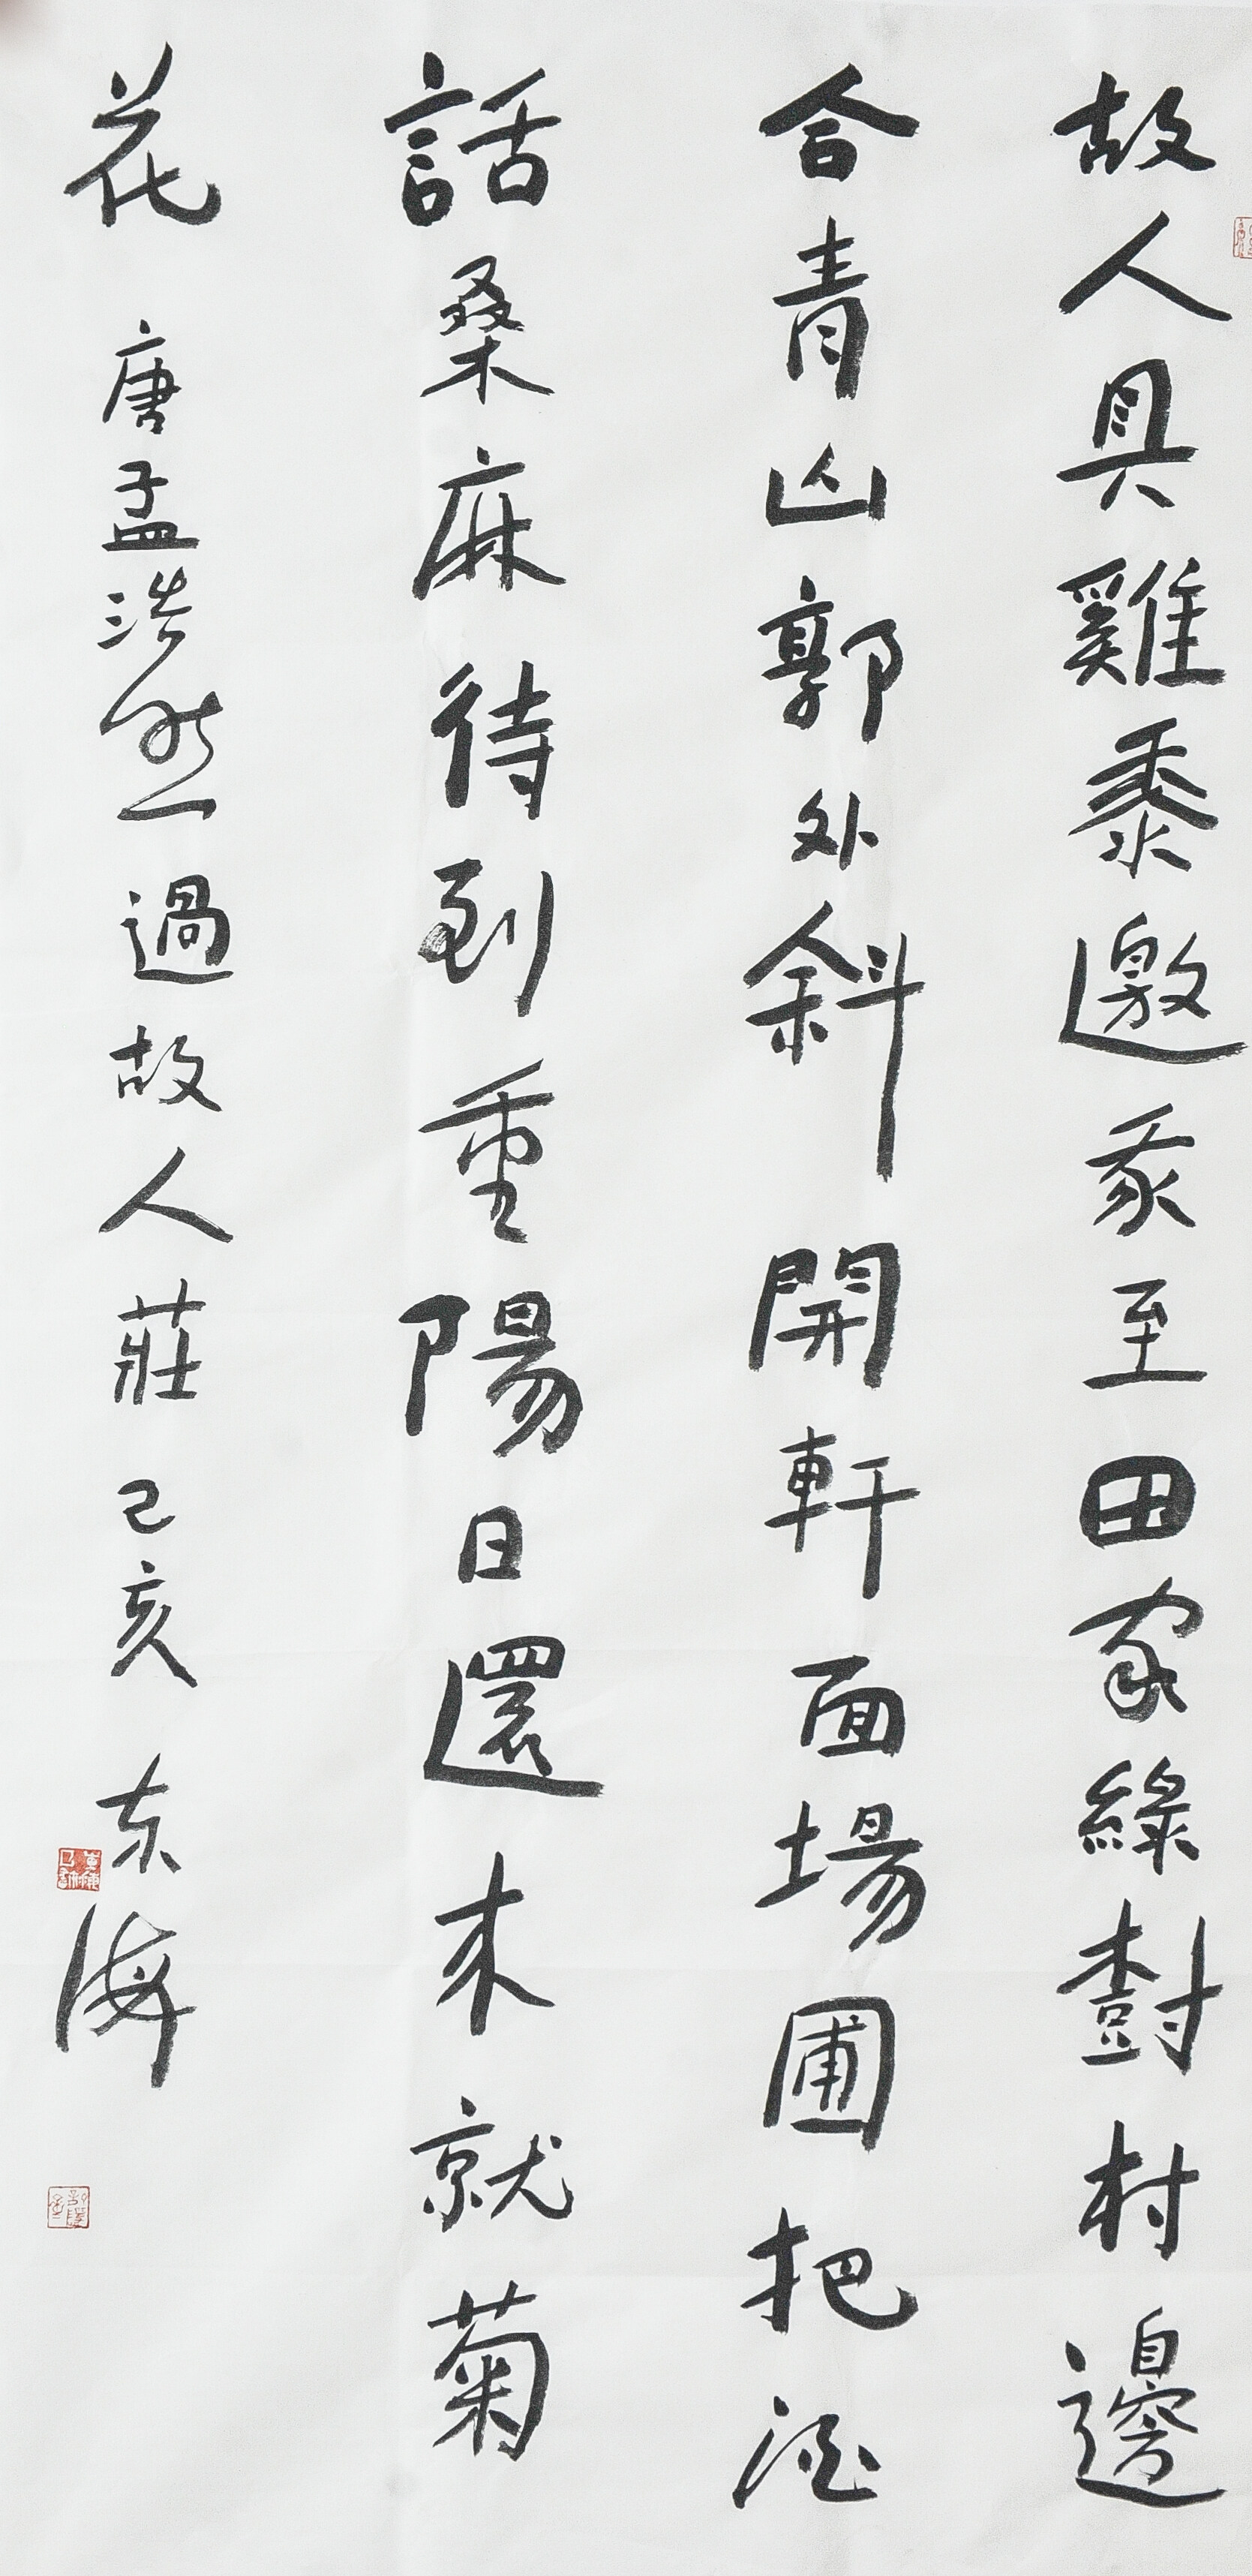 故人具雞黍邀我至田家綠樹村邊
合青山郭外斜開軒面場圃把酒
話桑麻待到重陽日還来就菊
花 唐孟浩然過故人莊己亥东海